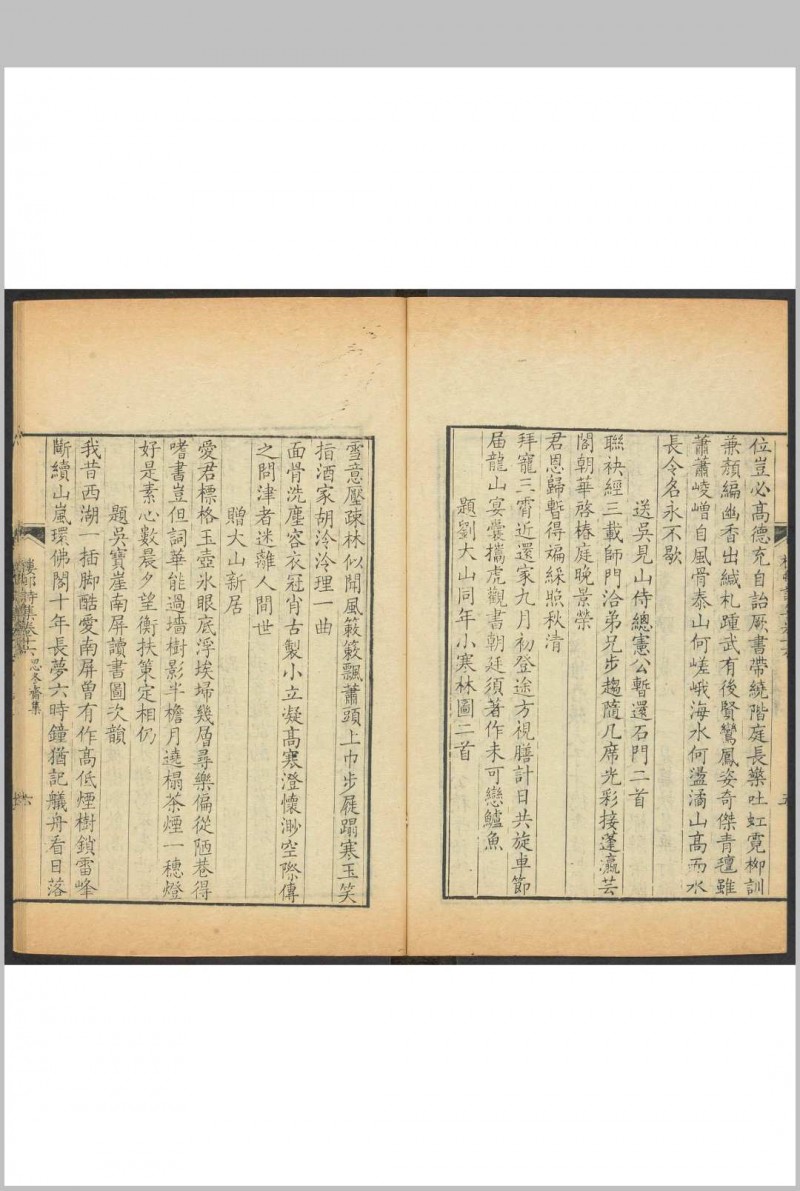 位豈必高德充自詒厥書帶繞階庭長藥吐虹霓柳訓
兼顏編幽香出緘札踵武有後賢鸞鳳姿奇傑青氊雖
蕭蕭崚嶒自風骨泰山何嵯峨海水何盪潏山高而水
長令名永不歇
送吳見山侍總憲公暫還石門二首
聯袂經三載師門洽弟兄步趨隨几席光彩接蓬瀛芸
閣朝華啓椿庭晚景榮
君恩歸暫得斒綵照秋清
拜寵三霄近還家九月初登途方視膳計日共旋車節
届龍山宴囊攜虎觀書朝廷須著作未可戀鱸魚
題劉大山同年小寒林圖二首
雪意壓疎林似聞風簌簌飄蕭頭上巾步屧蹋寒玉笑
指酒家胡泠泠理一曲
面骨洗塵容衣冠肖古製小立凝高寒澄懷渺空際傳
之問津者迷離人間世
贈大山新居
愛君標格玉壺氷眼底浮埃埽幾層尋樂偏從陋巷得
嗜書豈但詞華能過墻樹影半檐月遶榻茶煙一穗燈
好是素心數晨夕望衡扶策定相仍
題吳寶崖南屏讀書圖次韻
我昔西湖一插脚酷愛南屏曽有作高低煙樹鎖雷峰
斷續山嵐環佛閣十年長夢六時鐘猶記艤舟看日落
樓邨詩集卷十六 思冬齋集